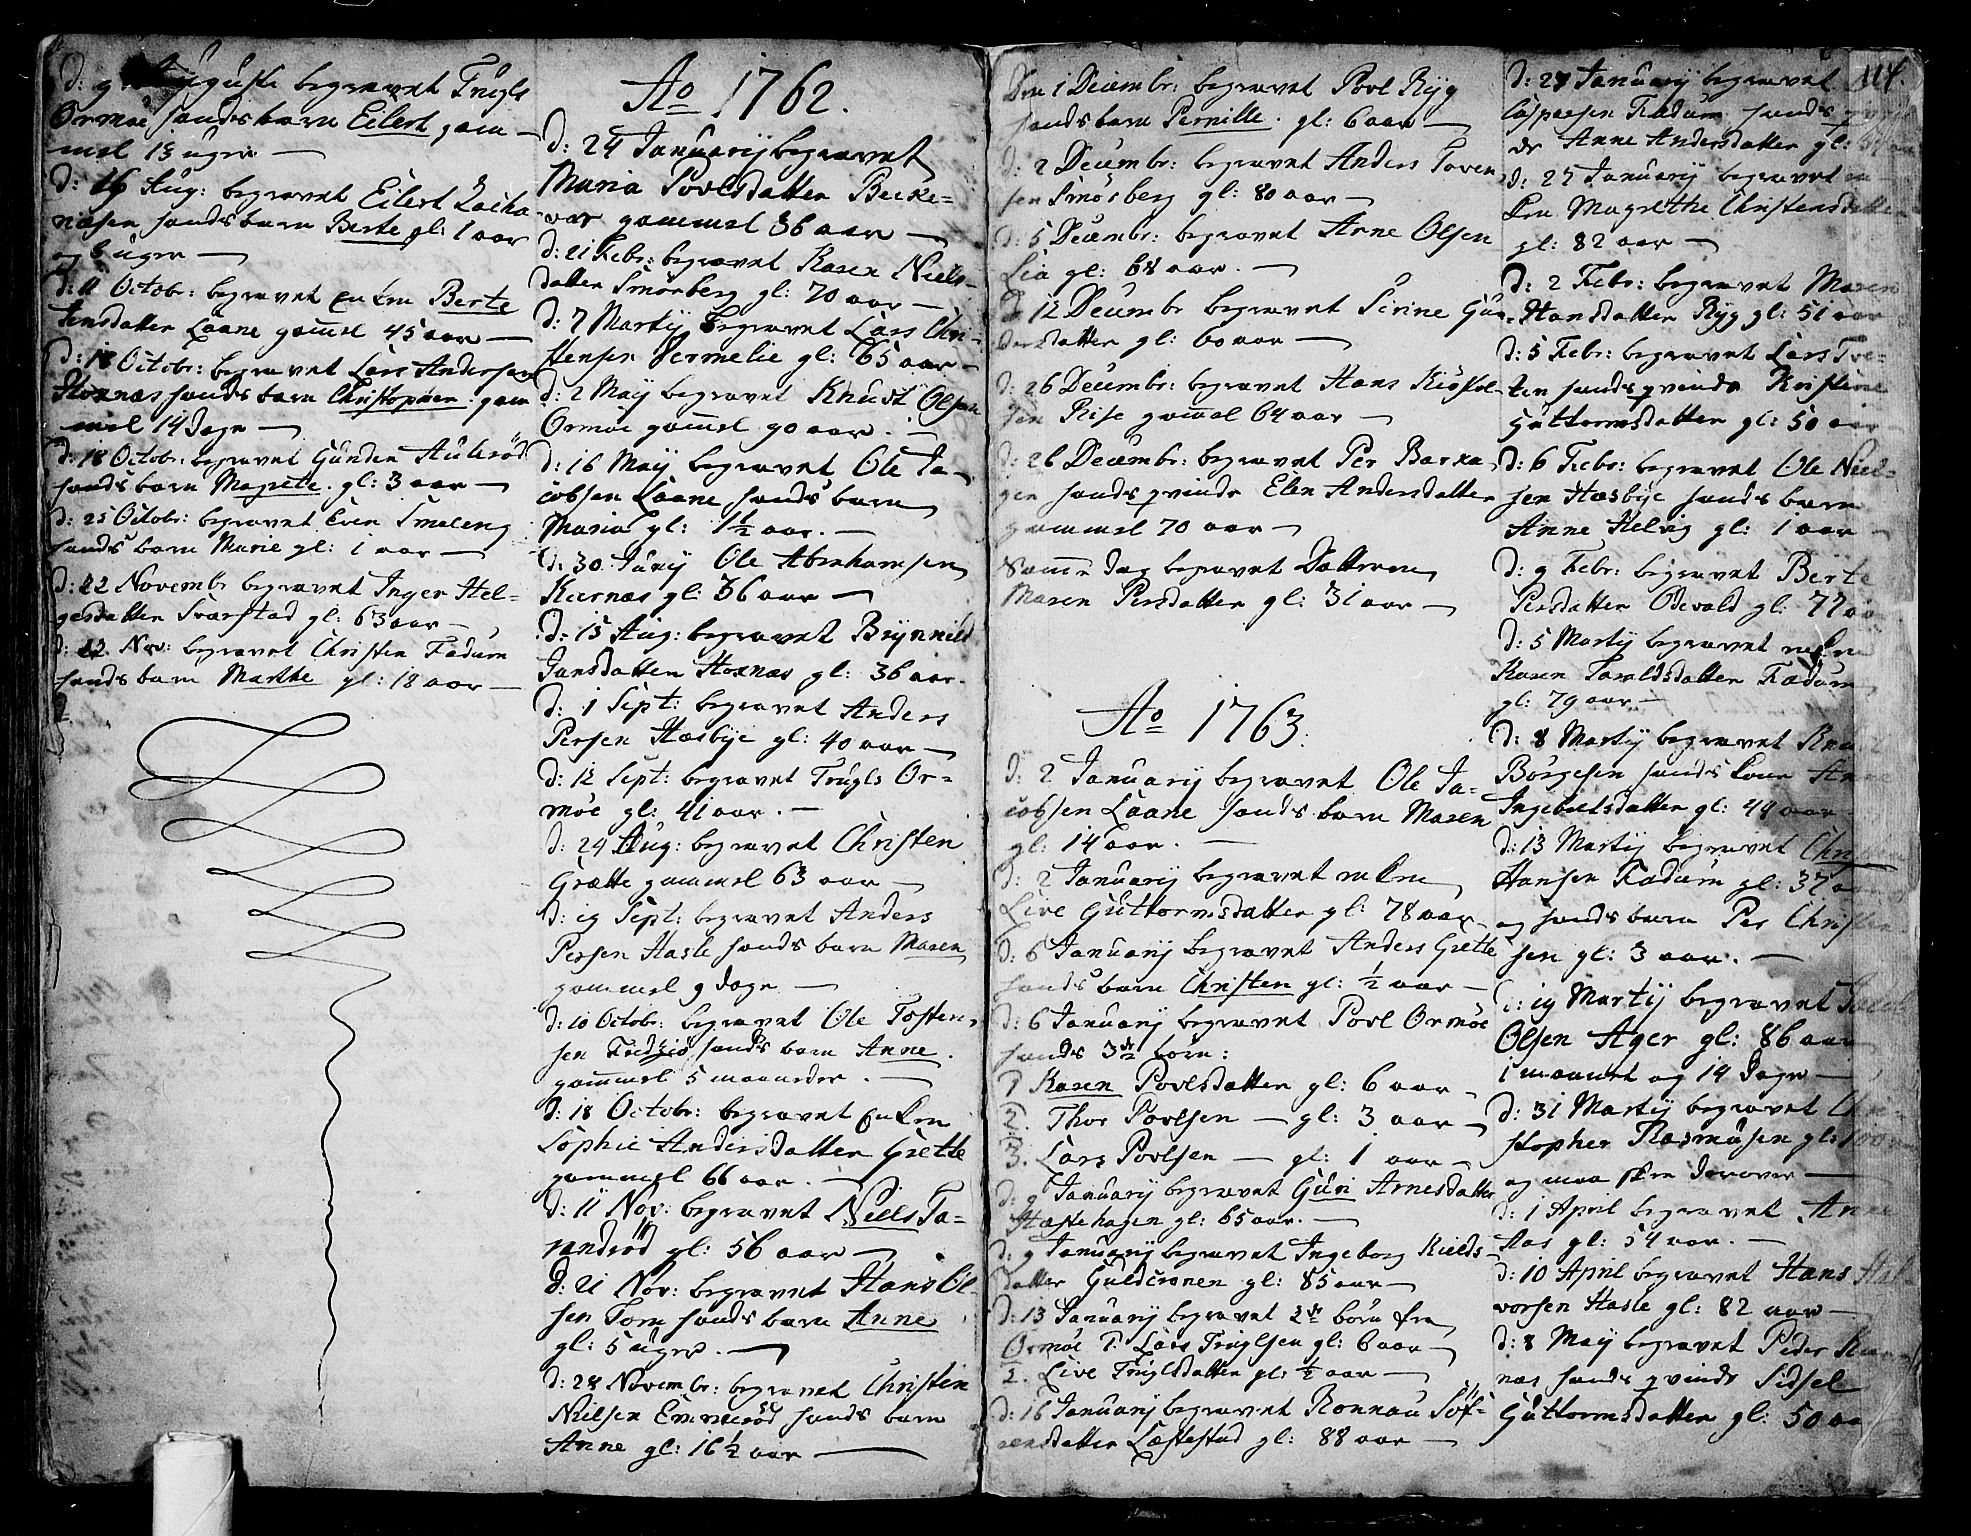 d: 9 Auguste begravet Trugls
Ormöe hands barn Eilert gam-
mel 13 uger
d: 16 Aug: begravet Eilert Zacha-
riasen hands barn Berte gl: 1 aar
og 6 uger
d: 11 Octobr: begravet Enken Berte
Iensdatter Laane gam̄el 45 aar
d: 18 Octobr: begravet Lars Andersen
Hoxnæs hands barn Christopher gam
mel 14 dage
d: 18 Octobr: begravet Gunder Aulesröd
hands barn Magrete gl: 3 aar
d: 25 Octobr: begravet Even Smaleng
hands barn Marie gl: 1 aar
d: 22 Novembr begravet Inger Hel-
gesdatter Svarstad gl: 63 aar
d: 22 Nov: begravet Christen Fadum
hands barn Marthe gl: 18 aar
Ao 1762.
d: 24 Januarij begravet
Maria Povlsdatter Becke-
var gammel 36 aar
d: 21 Febr: begravet Karen Niels-
datter Smörberg gl: 70 aar
d: 7 Martij begravet Lars Chri-
stensen Vermelie gl: 65 aar
d: 2 Maij begravet Knudt Olsen
Ormöe gam̄el 90 aar.
d: 16 Maij begravet Ole Ia-
cobsen Laane hands barn
Maria gl: 1½ aar.
d: 30 Junij Ole Abrahamsen
Kiernæs gl: 36 aar
d: 15 Aug: begravet Brynnild
Jansdatter Hoxnæs gl: 36 aar.
d: 1 Sept: begravet Anders
Persen Hæsbye gl: 40 aar
d: 12 Sept: begravet Trugls Or-
möe gl: 41 aar.
d: 24 Aug: begravet Christen
Grætte gammel 63 aar
d: 19 Sept: begravet Anders
Persen Hasle hands barn Maren
gammel 9 dage
d: 10 Octobr: begravet Ole Tosten-
sen hands barn Anne.
gam̄el 5 maaneder.
d: 18 Octobr: begravet Enken
Sophie Andersdatter Grette
gammel 66 aar.
d: 11 Nov: begravet Niels Ta-
randröd gl: 56 aar
d: 21 Nov: begravet Hans Ol-
sen Tom hands barn Anne
gl: 5 uger.
d: 28 Novembr: begravet Christen
Nielsen Emmeröd hands barn
Anne gl: 16½ aar
Den 1 Decembr: begravet Povl Ryg
hands barn Pernille. gl: 6 aar
d: 2 Decembr: begravet Anders Toven
sen Smörberg gl: 80 aar
d: 5 Decembr: begravet Arne Olsen
Lia gl: 68 aar.
d: 12 Decembr begravet Sirine Gun
dersdatter gl: 60 aar
d: 26 Decembr: begravet Hans
sen Rise gam̄el 64 aar
d: 26 Decembr: begravet Per Barka-
gen hands qvinde Elen Andersdatter
gammel 70 aar
Sam̄e dag begravet Datteren
Maren Persdatter gl: 31 aar
Ao 1763.
d: 2 Januarij begravet Ole Ia-
cobsen Laane hands barn Maren
gl: 14 aar.
d: 2 Januarij begravet enken
Live Guttormsdatter gl: 78 aar
d: 6 Januarij begravet Anders Grette
hands barn Christen gl: ½ aar
d: 6 Januarij begravet Povl Ormöe
hands 3de börn:
1 Karen Povlsdatter gl: 6 aar
2. Thor Povlsen — gl: 3 aar
3. Lars Povlsen — gl: 1 aar
d: 9 Januarij begravet Guri Arnesdatter
Hæstehagen gl: 65 aar.
d: 9 Januarij begravet Ingeborg Kields-
datter Guldcronen gl: 85 aar
d: 13 Januarij begravet 2de börn fra
Ormöe 1. Lars Truglsen gl: 6 aar
2. Live Truglsdatter gl: ½ aar
d: 16 Januarij begravet Ronnau Söf-
rensdatter Læstestad gl: 88 aar
114.
d: 27 Januarij begravet
Caspersen Fadum hands qvin
de Anne Andersdatter gl:
d: 27 Januarij begravet en-
ken Magrethe Christensdatter
gl: 82 aar
d: 2 Febr: begravet Maren
Hansdatter Ryg gl: 51 aar
d: 5 Febr: begravet Lars Tve-
ten hands qvinde Kirstine
Guttormsdatter gl: 50 aar
d: 6 Febr: begravet Ole Niel-
sen Hæsbye hands barn
Anne Helvig gl: 1 aar
d: 9 Febr: begravet Berte
Persdatter Odevald gl: 77 aar
d: 5 Martij begravet enken
Karen Taraldsdatter Fadum
gl: 79 aar
d: 8 Martij begravet
Börgesen hands kone Anne
Ingebretsdatter gl: 49 aar
d: 13 Martij begravet Christen
Hansen Fadum gl: 37 aar
og hands barn Per Christen
sen gl: 3 aar.
d: 19 Martij begravet Jacob
Olsen Ager gl: 86 aar
1 maanet og 14 dage
d: 31 Martij begravet Chri-
stopher Rasmusen gl: 100 aar
og maa skee derover
d: 1 April begravet Anne
Aas gl: 54 aar.
d: 10 April begravet Hans Hal-
vorsen Hasle gl: 82 aar
d: 8 Maij begravet Peder
næs hands qvinde Sidsel
Guttormsdatter gl: 50 aar